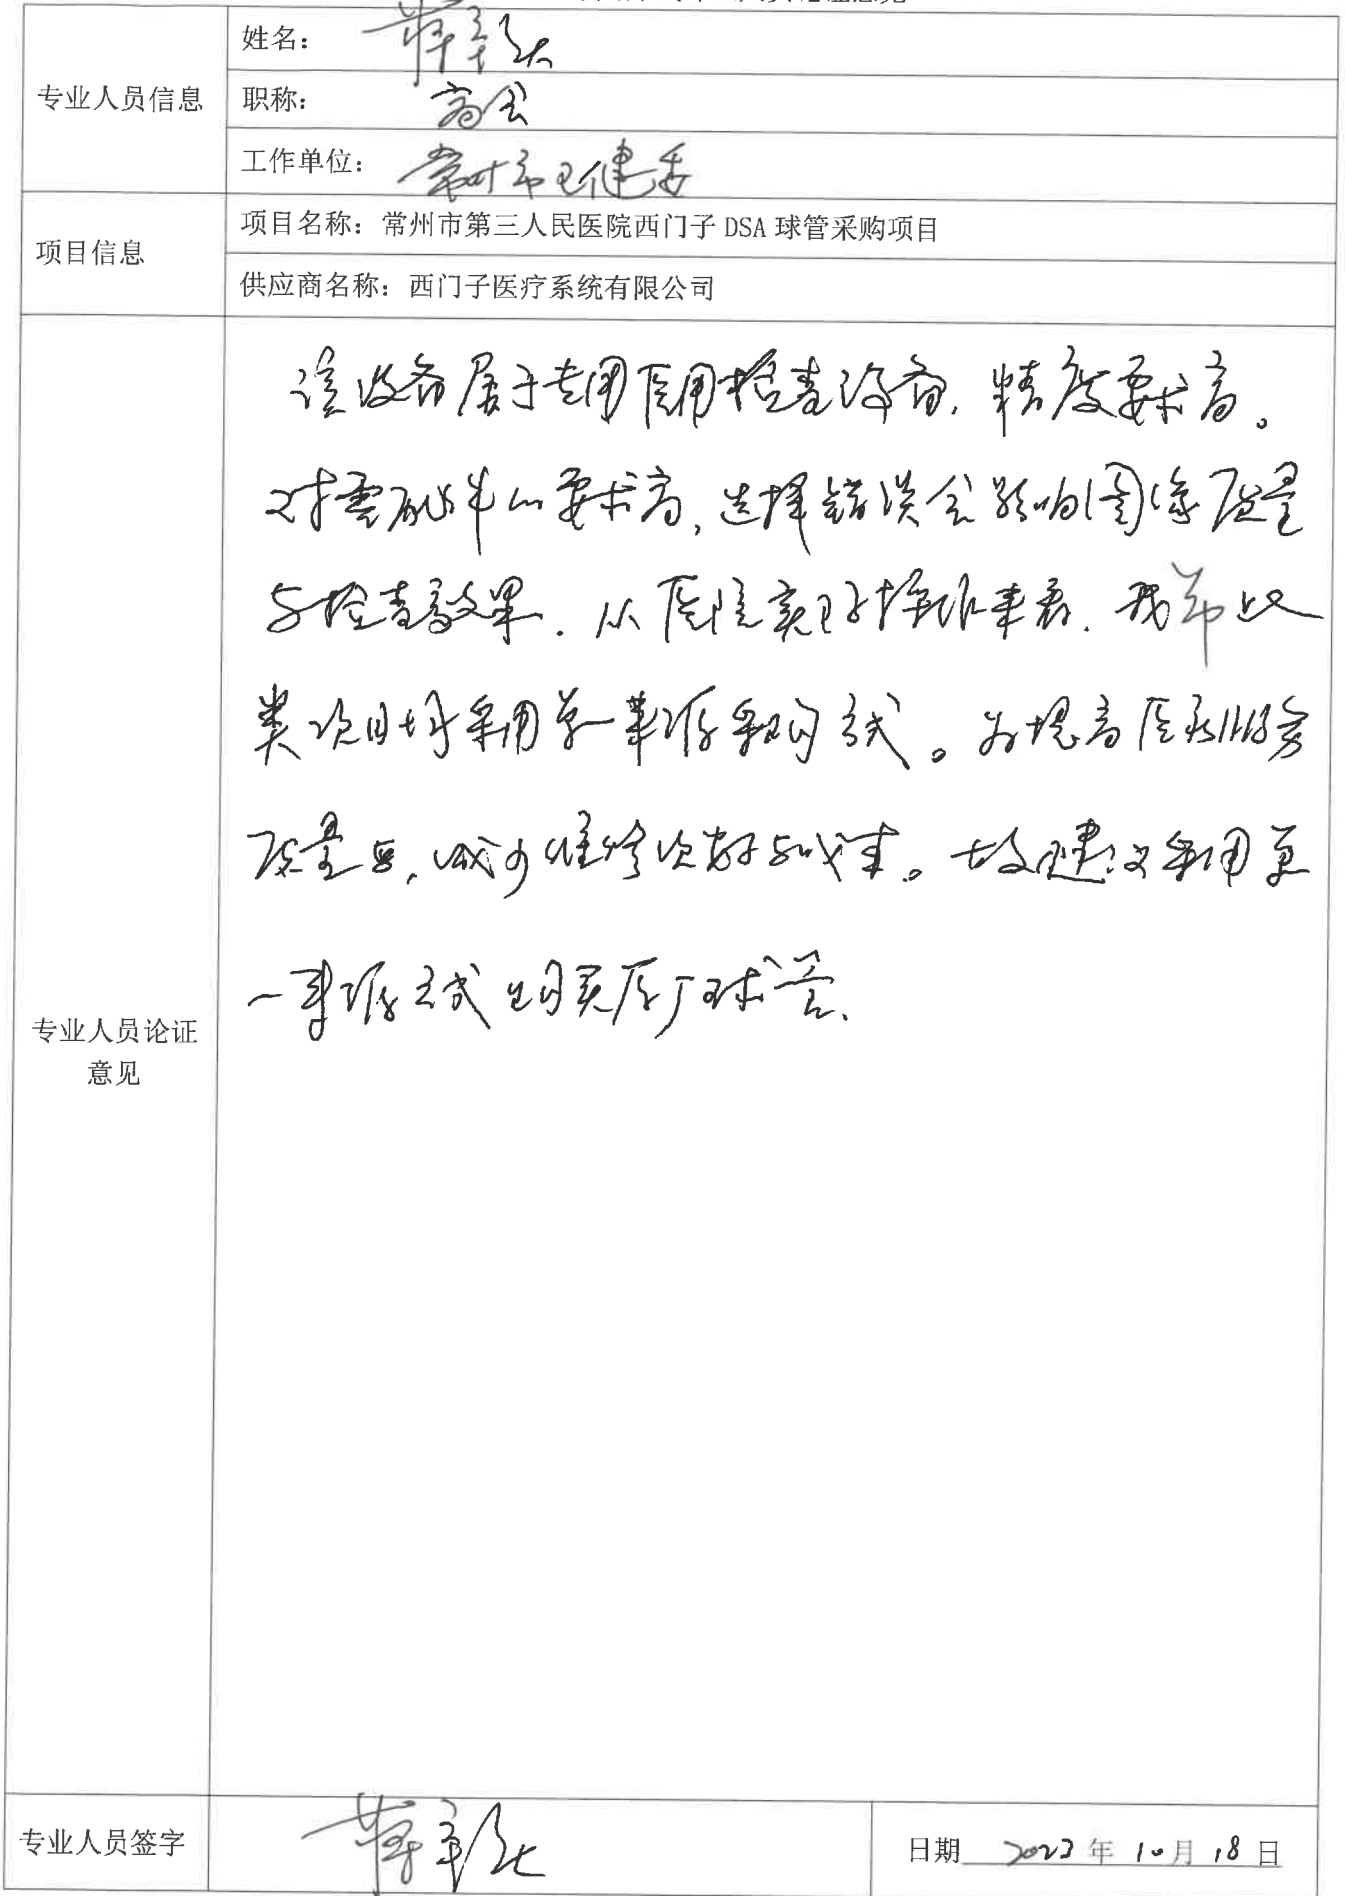 专业人员信息
姓名：
职称：高会
工作单位：常州市卫健委
项目信息
项目名称：常州市第三人民医院西门子 DSA 球管采购项目
供应商名称：西门子医疗系统有限公司
专业人员论证
意见
该设备属于专用医用检查设备，精度要求高。
对零配件的要求高，选择错误会影响图像质量
与检查效果．从医院实际情况来看．我市此
类项目均采用单一来源采购方式。为提高医疗服务
质量，减少维修次数与成本。故建议采用单
一来源方式购买原厂球管．
专业人员签字
日期 2023年10月18日